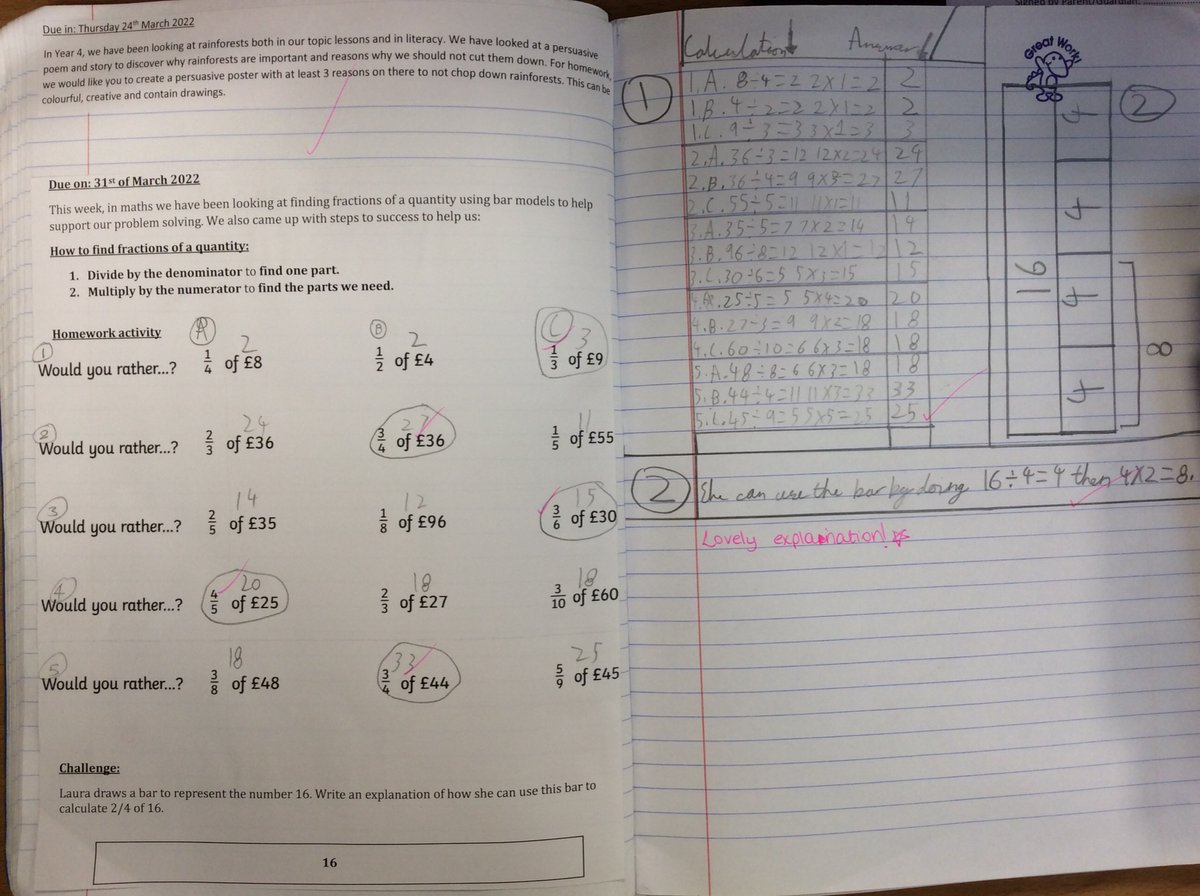 Due in: Thursday 24th March 2022
In Year 4, we have been looking at rainforests both in our topic lessons and in literacy. We have looked at a persuasive
poem and story to discover why rainforests are important and reasons why we should not cut them down. For homework,
we would like you to create a persuasive poster with at least 3 reasons on there to not chop down rainforests. This can be
colourful, creative and contain drawings.
Due on: 31st of March 2022
This week, in maths we have been looking at finding fractions of a quantity using bar models to help
support our problem solving. We also came up with steps to success to help us:
How to find fractions of a quantity:
1. Divide by the denominator to find one part.
2. Multiply by the numerator to find the parts we need.
Homework activity A B C
1 2 2 3
Would you rather...? 1/4 of £8 1/2 of £4 1/3 of £9
2 24 27 11
Would you rather...? 2/3 of £36 3/4 of £36 1/5 of £55
3 14 12 15
Would you rather...? 2/5 of £35 1/8 of £96 3/6 of £30
4 20 18 18
Would you rather...? 4/5 of £25 2/3 of £27 3/10 of £60
5 18 33 25
Would you rather...? 3/8 of £48 3/4 of £44 5/9 of £45
Challenge:
Laura draws a bar to represent the number 16. Write an explanation of how she can use this bar to
calculate 2/4 of 16.
16
Signed by Parent/Guardian:
Calculation Answer
1
1.A. 8÷4=2 2x1=2 2
1.B. 4÷2=2 2x1=2 2
1.C. 9÷3=3 3x1=3 3
2.A. 36÷3=12 12x2=24 24
2.B. 36÷4=9 9x3=27 27
2.C. 55÷5=11 11x1=11 11
3.A. 35÷5=7 7x2=14 14
3.B. 96÷8=12 12x1=12 12
3.C. 30÷6=5 5x3=15 15
4.A. 25÷5=5 5x4=20 20
4.B. 27÷3=9 9x2=18 18
4.C. 60÷10=6 6x3=18 18
5.A. 48÷8=6 6x3=18 18
5.B. 44÷4=11 11x3=33 33
5.C. 45÷9=5 5x5=25 25
Great Work!
2
16
4
4
4
4
8
2 She can use the bar by doing 16÷4=4 then 4x2=8.
Lovely explanation!